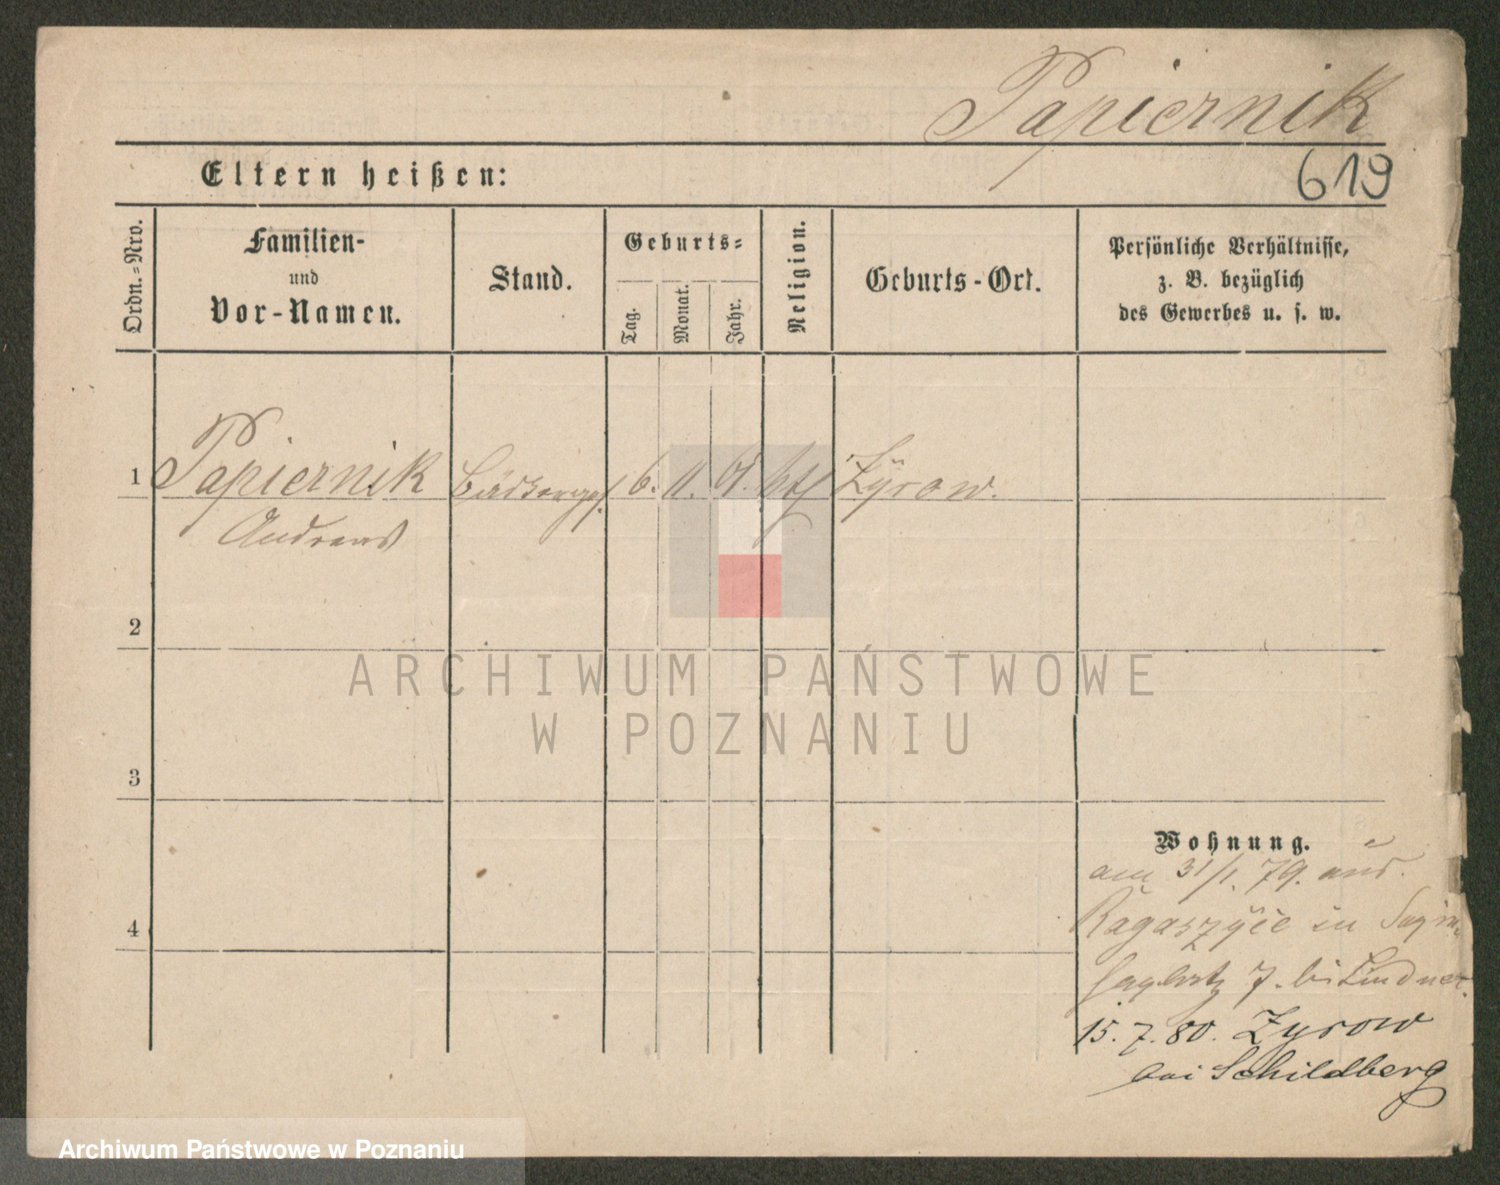 Papiernik
Eltern heißen:
619
Ordn.-Nro.
Familien-
und
Vor-Namen.
Stand.
Geburts-
Tag.
Monat.
Jahr.
Religion.
Geburts-Ort.
Persönliche Verhältnisse,
z. B. bezüglich
des Gewerbes u. s. w.
1 Papiernik Bäckerges. 6. 11. kth Zÿrow.
Andreas
2
ARCHIWUM PAŃSTWOWE
W POZNANIU
3
Wohnung.
am 31/1. 79. aus
4
Ragaszÿce in
7. bei Lindner.
15. 7. 80. Zyrow
bei Schildberg
Archiwum Państwowe w Poznaniu